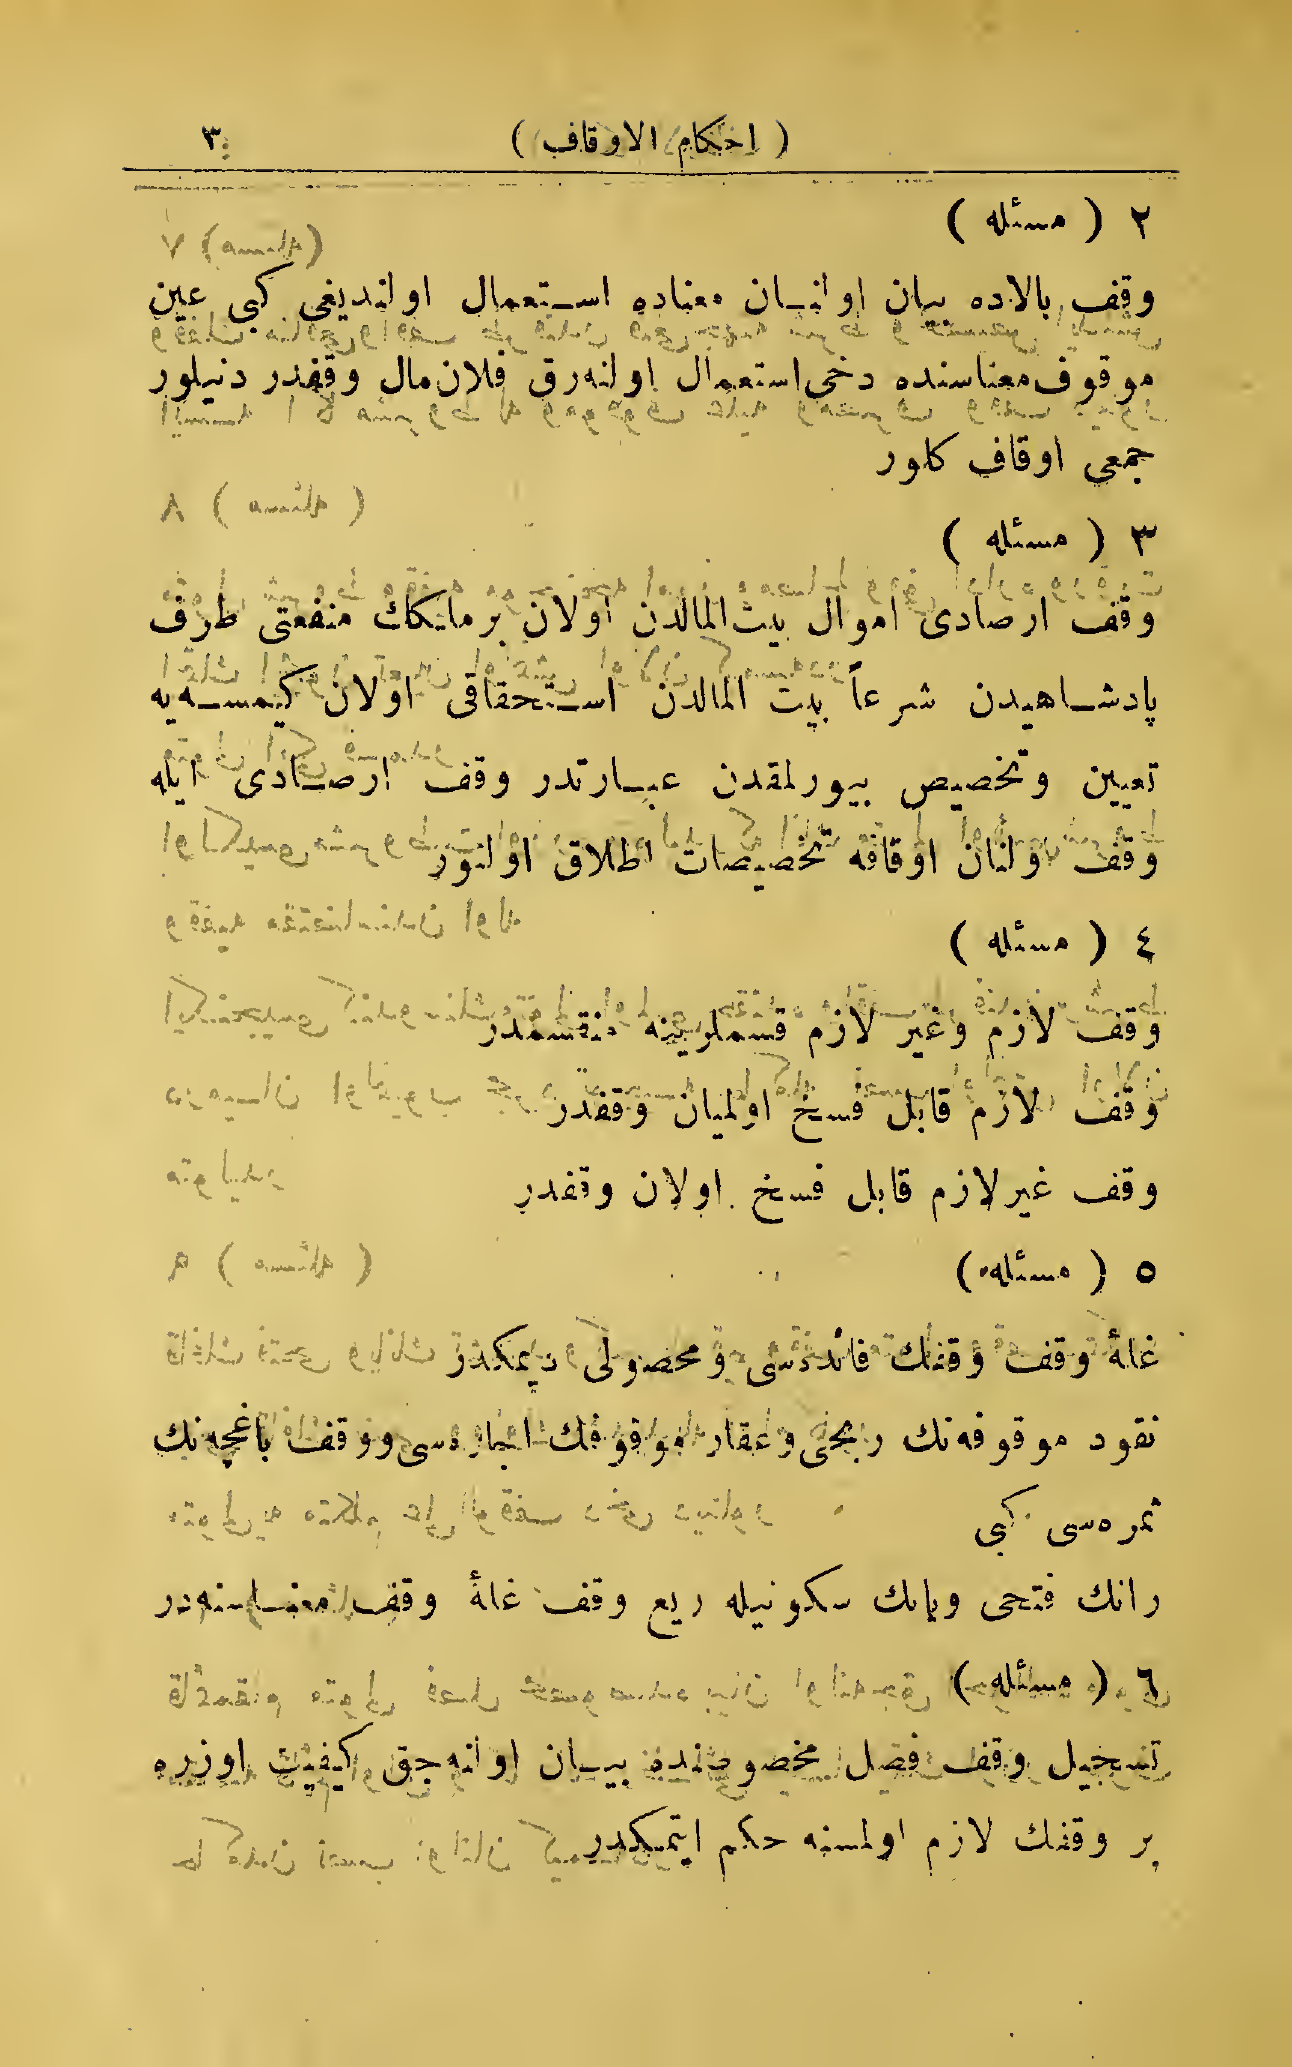 ( احكام الاوقاف ) ٣
٢ ( مسئله )
وقف بالاده بيان اولنان معناده استعمال اولنديغى كبى عين
موقوف معناسنده دخى استعمال اولنه‌رق فلان مال وقفدر دنيلور
جمعى اوقاف كلور
٣ ( مسئله )
وقف ارصادى اموال بيت المالدن اولان بر ملكك منفعتى طرف
پادشاهيدن شرعاً بيت المالدن استحقاقى اولان كيمسه‌يه
تعيين وتخصيص بيورلمقدن عبارتدر وقف ارصادى ايله
وقف اولنان اوقافه تخصيصات اطلاق اولنور
٤ ( مسئله )
وقف لازم وغير لازم قسملرينه منقسمدر
وقف لازم قابل فسخ اولميان وقفدر
وقف غير لازم قابل فسخ اولان وقفدر
٥ ( مسئله )
غلهٔ وقف وقفك فائده‌سى ومحصولى ديمكدر
نقود موقوفه‌نك ربحى وعقار موقوفك اجاره‌سى ووقف باغچه‌نك
ثمره‌سى كبى
رانك فتحى ويانك سكونيله ريع وقف غلهٔ وقف معناسنه‌در
٦ ( مسئله )
تسجيل وقف فصل مخصوصنده بيان اولنه‌جق كيفيت اوزره
بر وقفك لازم اولمسنه حكم ايتمكدر